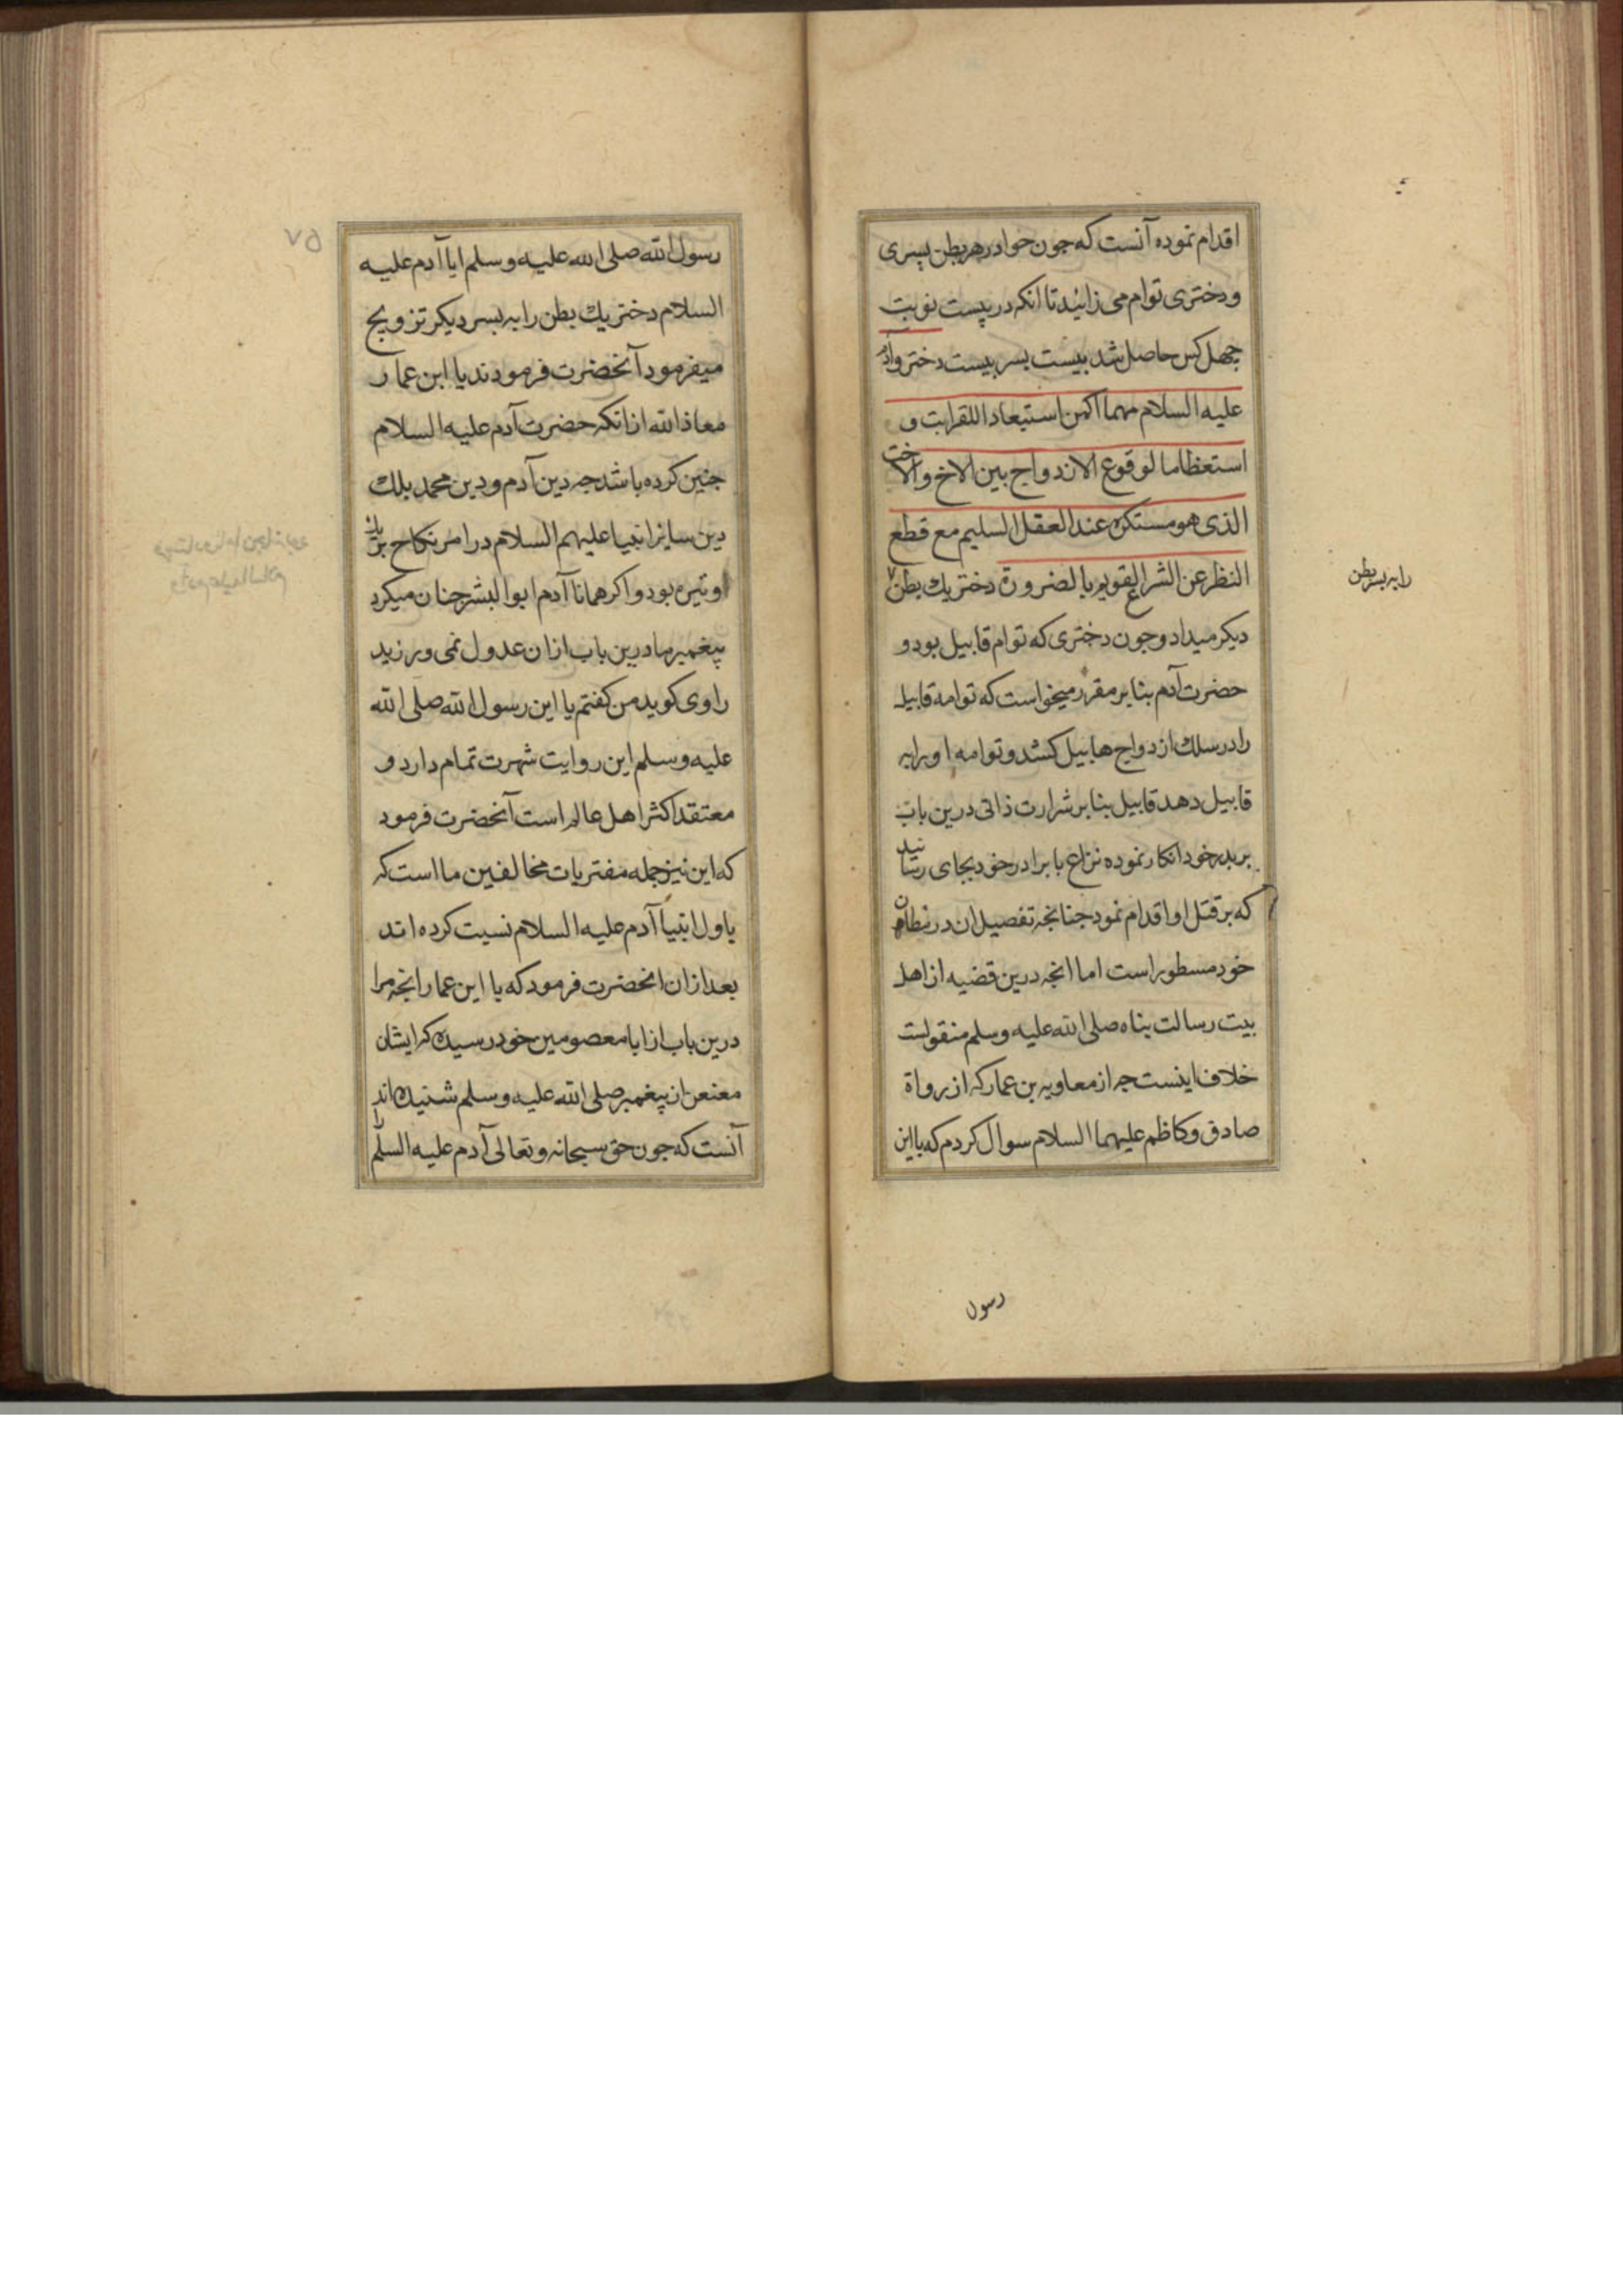 اقدام نموده آنست که جون حوا در هر بطن پسری
و دختری توام می زائید تا انکه در پیست نوبت
چهل کس حاصل شد بیست بسر بیست دختر و آدم
علیه السلام مهما اکمن استیعادا للقرابت و
استعظاما لوقوع الازدواج بین الاخ والاخت
الذی هو مستکره عند العقل السلیم مع قطع
النظر عن الشرع القویم بالضرورة دختر یك بطن
را به بسر بطن
دیکر میداد و جون دختری که توام قابیل بود و
حضرت آدم بنا بر مقرر میخواست که توامه قابیل
را در سلك ازدواج هابیل کشد و توامه او را به
قابیل دهد قابیل بنا بر شرارت ذاتی درین باب
بر پدر خود انکار نموده نزاع با برادر خود بجای رسانید
که بر قتل او اقدام نمود جنانجه تفصیل ان در مظان
خود مسطور است اما انجه درین قضیه از اهل
بیت رسالت بناه صلی الله علیه وسلم منقولست
خلاف اینست جه از معاویه بن عمار که از رواة
صادق و کاظم علیهما السلام سوال کردم که یا ابن
رسول
رسول الله صلی الله علیه وسلم ایا آدم علیه
السلام دختر یك بطن را به بسر دیکر تزویج
میفرمود آنحضرت فرمودند یا ابن عمار
معاذ الله ازانکه حضرت آدم علیه السلام
جنین کرده باشد جه دین آدم و دین محمد بلك
دین سایر انبیا علیهم السلام در امر نکاح بر یك
وتیره بود و اکر همانا آدم ابو البشر جنان میکرد
پیغمبر ما درین باب ازان عدول نمی ورزید
راوی کوید من کفتم یا ابن رسول الله صلی الله
علیه وسلم این روایت شهرت تمام دارد و
معتقد اکثر اهل عالم است آنحضرت فرمود
که این نیز جمله مفتریات مخالفین ما است که
باول انبیا آدم علیه السلام نسبت کرده اند
بعد ازان انحضرت فرمود که یا ابن عمار انجه مرا
درین باب از ابا معصومین خود رسیده که ایشان
معنعن از پیغمبر صلی الله علیه وسلم شنیده اند
آنست که جون حق سبحانه و تعالی آدم علیه السلم را